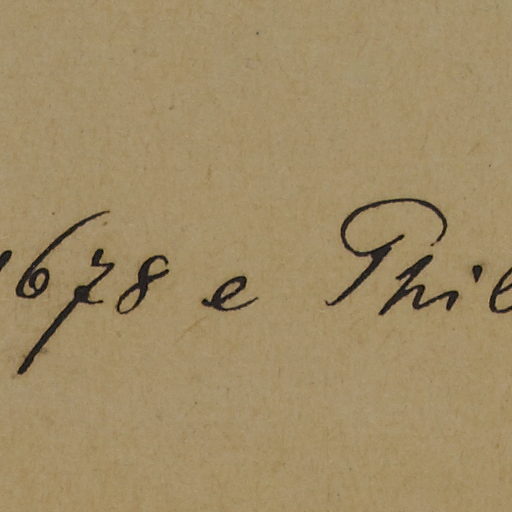 1678 e Phil